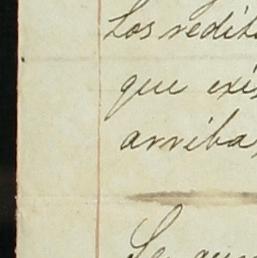 Los redit
que exis
arriba
Se